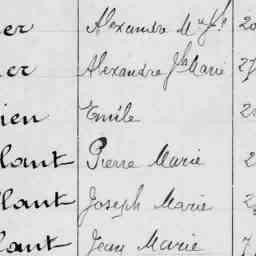 er Alexandre Mie Jh 20
er Alexandre Jh Marie 27
ien Emile 2
lant Pierre Marie 2
lant Joseph Marie 2
lant Jean Marie 7